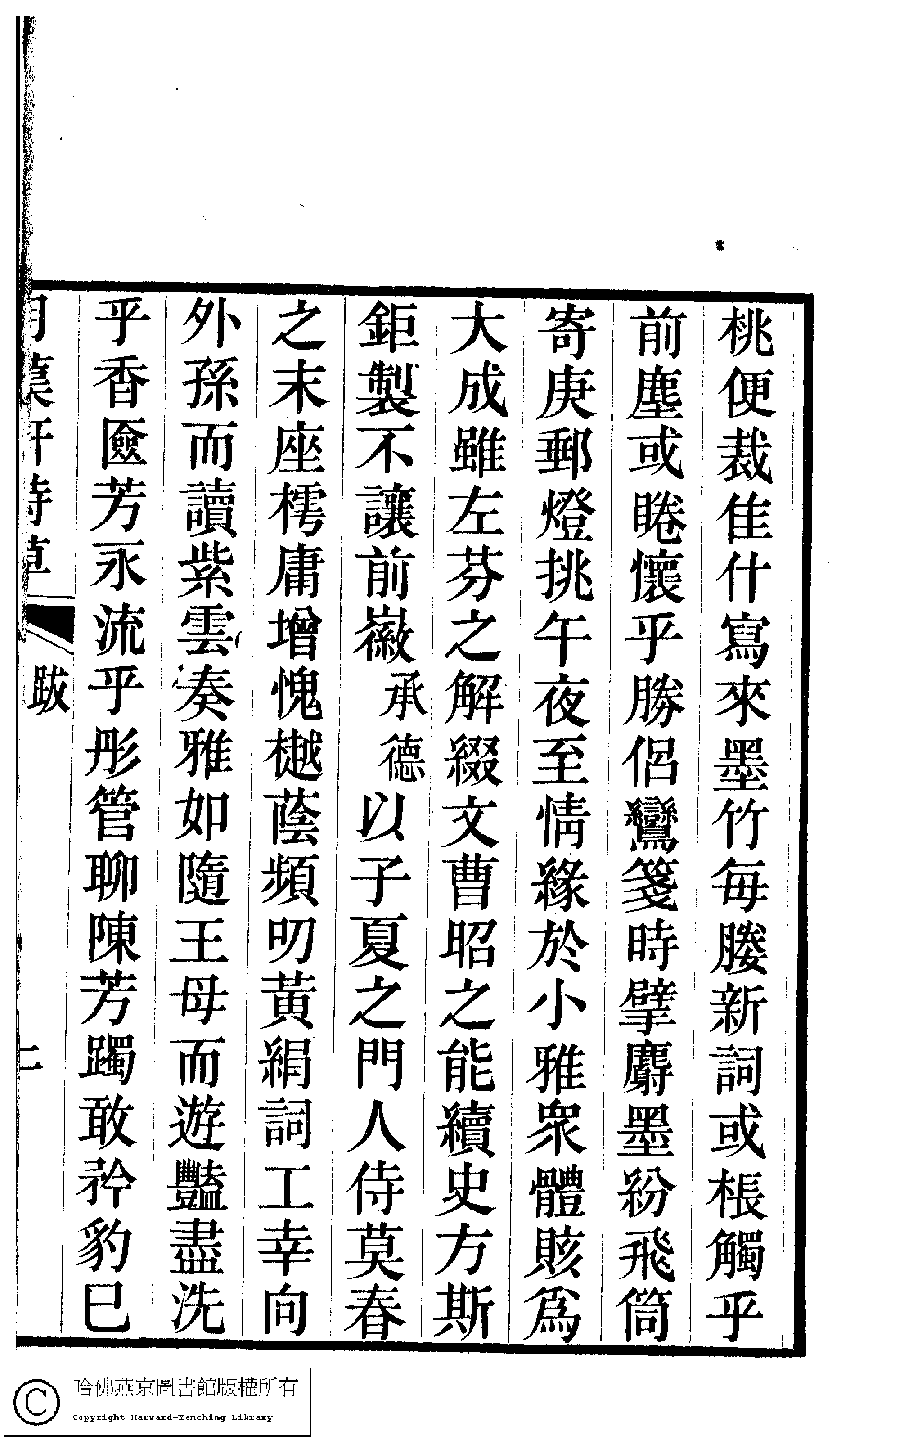 桃便裁佳什寫來墨竹每謄新詞或棖觸乎
前塵或睠懷乎勝侶鸞箋時擘麝墨紛飛筒
寄庚郵燈挑午夜至情緣於小雅衆體賅爲
大成雖左芬之解綴文曹昭之能續史方斯
鉅製不讓前徽承德以子夏之門人侍莫春
之末座樗庸增愧樾蔭頻叨黃絹詞工幸向
外孫而讀紫雲奏雅如隨王母而遊豔盡洗
乎香匳芳永流乎彤管聊陳芳躅敢矜豹巳
軒詩草
跋
二
哈佛燕京圖書館版權所有
Copyright Harvard-Yenching Library